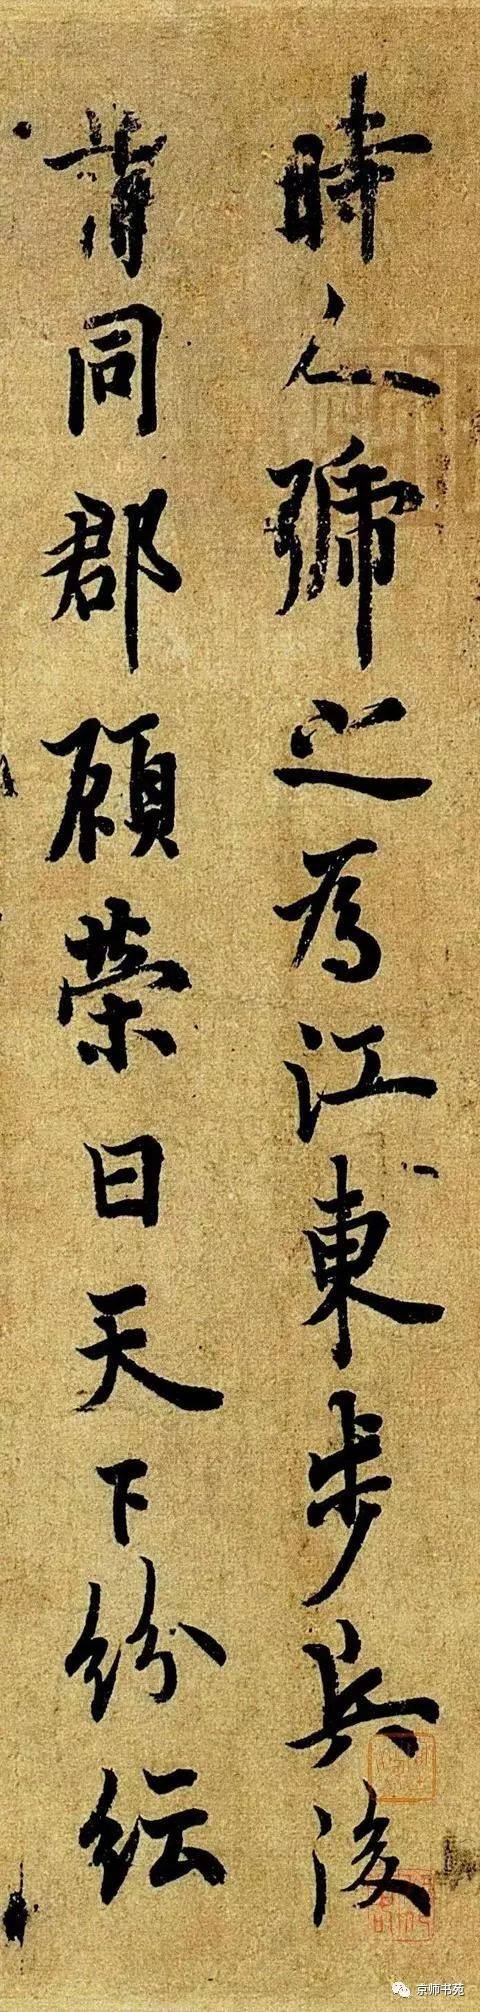 時人號之為江東步兵後
同郡顧榮曰天下紛紜
京师书苑